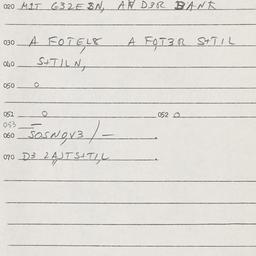 020 MIT G32E 8N, AN D3R BANK
030 A FOTEL8 A FOT3R S+TIL
040 S+TILN,
050 o
051 o 052 o
053 —
060 SOSNOV3/—
070 D3 2AJTS+TI,L